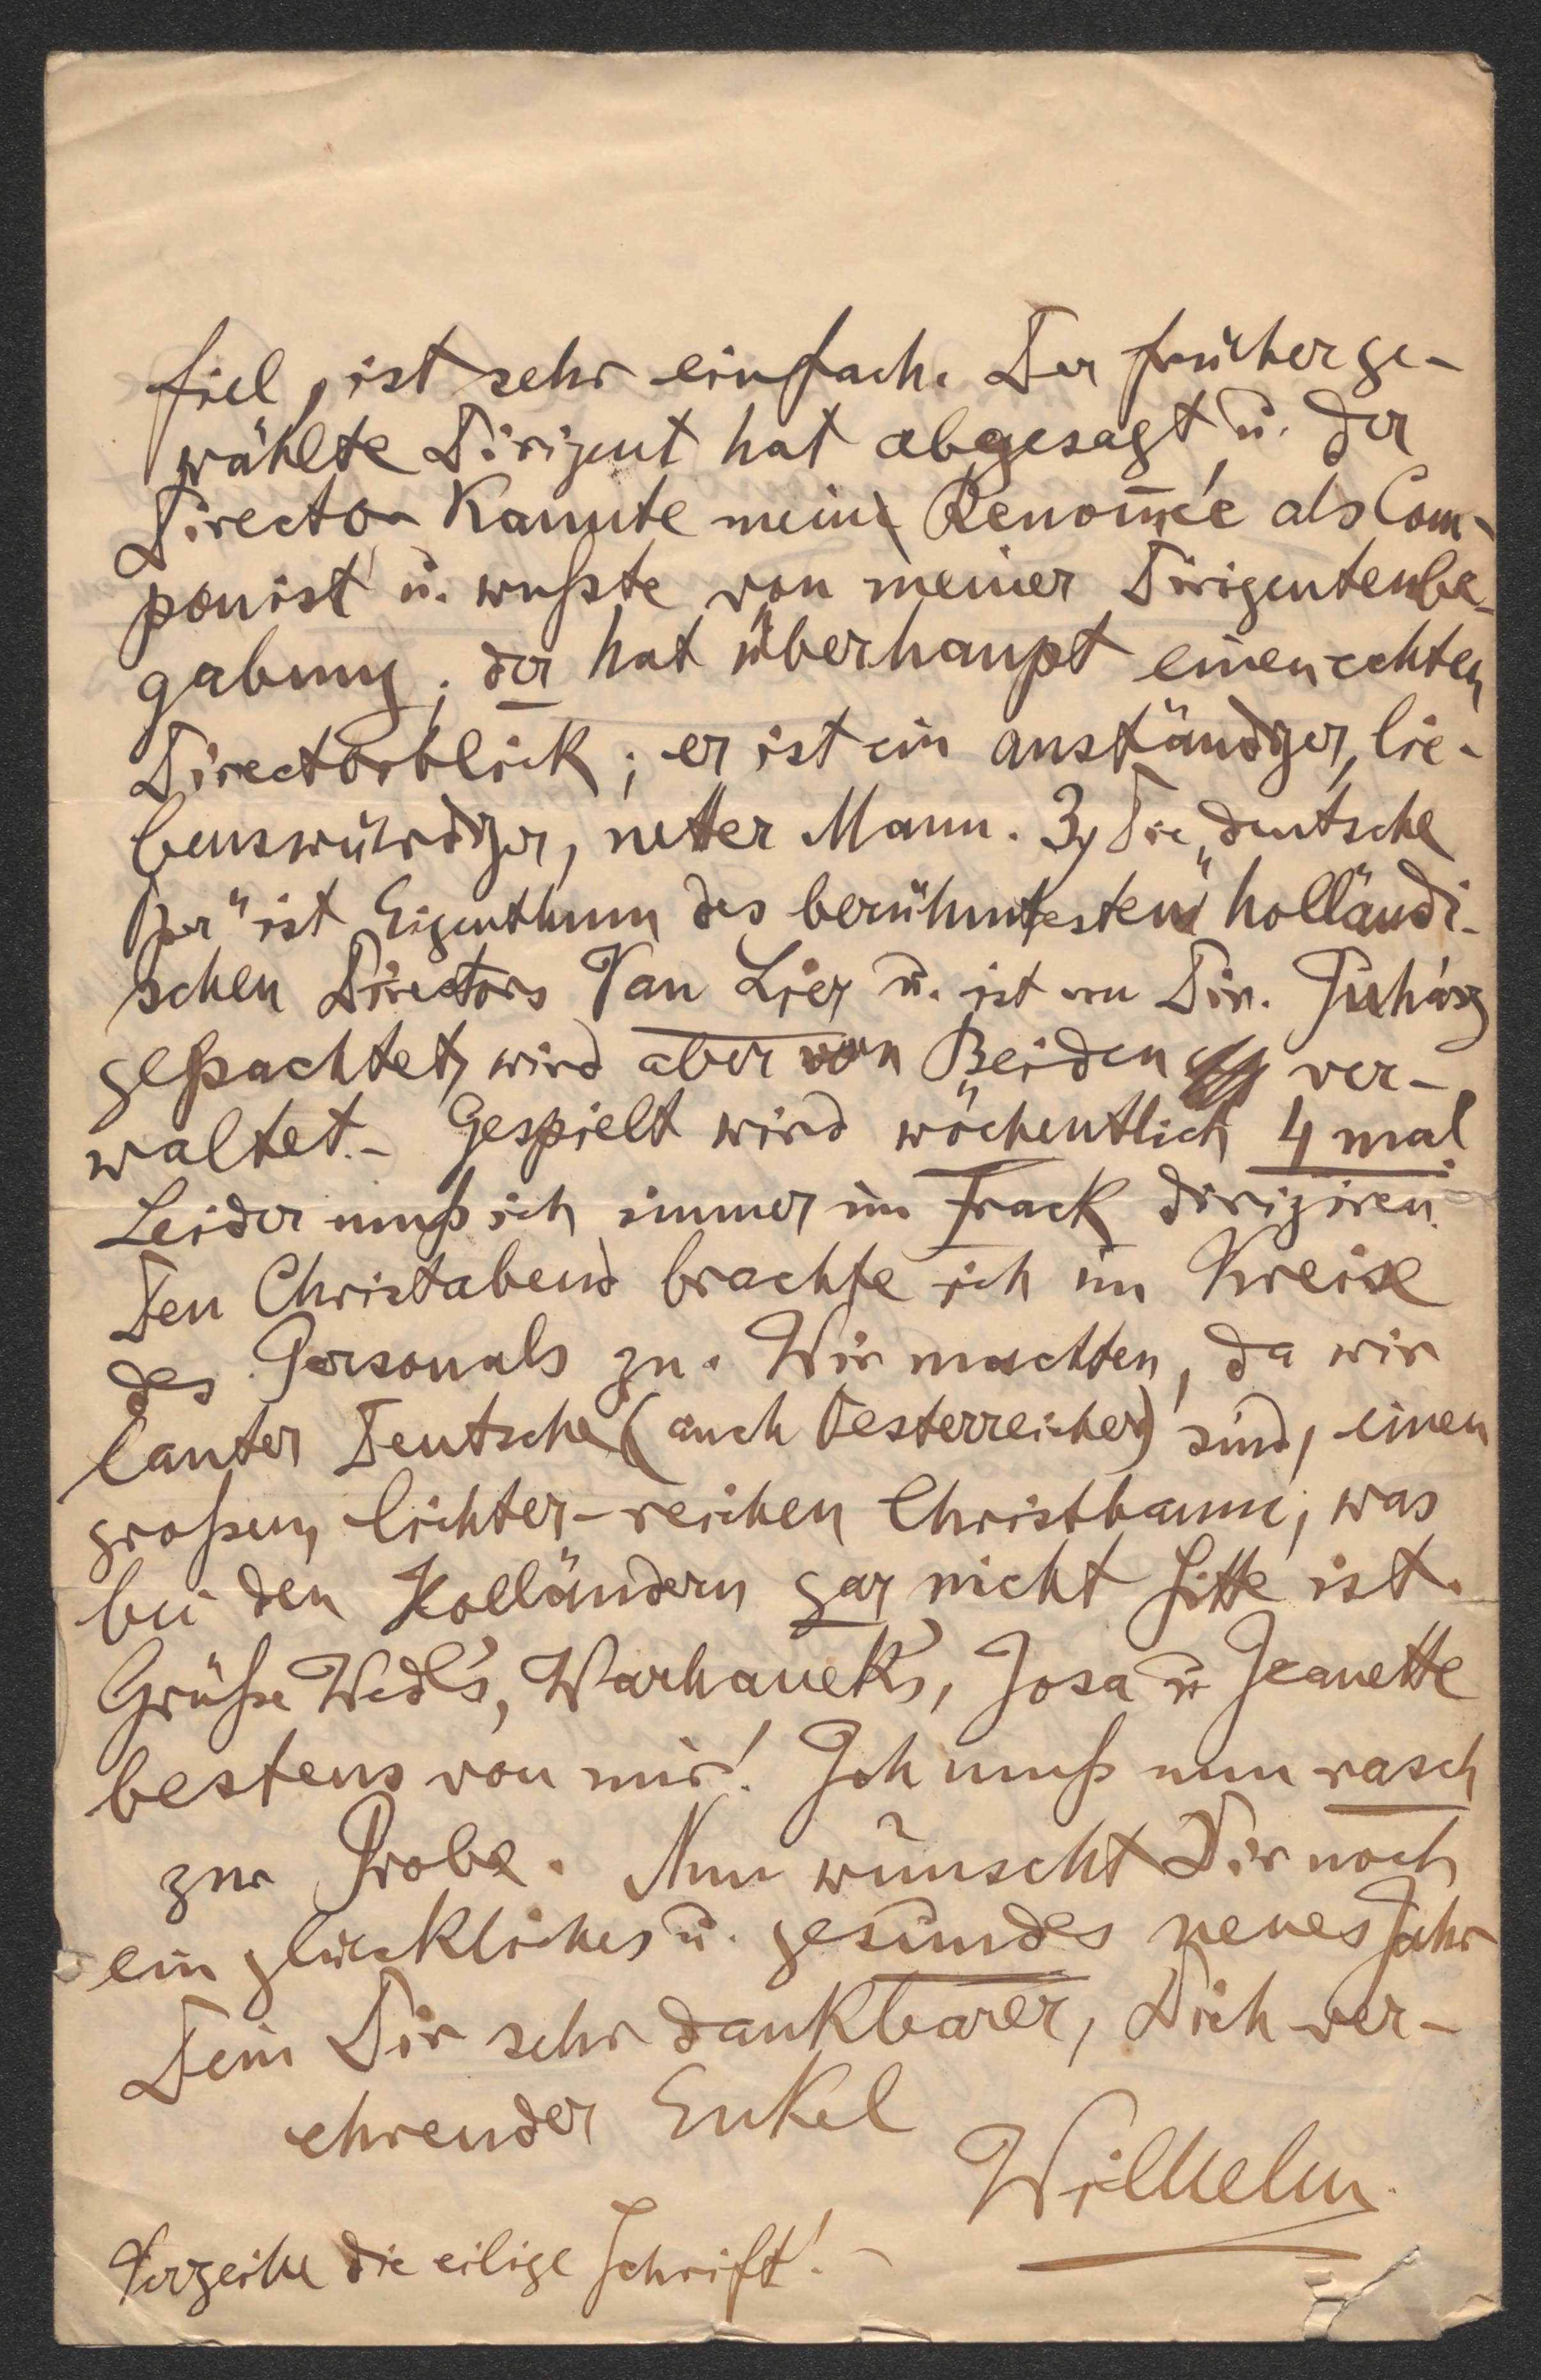 fiel, ist sehr einfach. Der früher ge-
wählte Dirigent hat abgesagt u. der
Director kannte mein Renom̅ée als Com-
ponist u. wußte von meiner Dirigentenbe-
gabung; der hat überhaupt einen echten
Directorblick; er ist ein anständiger, lie-
benswürdiger, netter Mann. 3, Die „deutsche
Oper" ist Eigenthum des berühmtesten holländi-
schen Directors Van Lier u. ist von Dir. Juhász
gepachtet, wird aber von Beiden ver-
waltet. - Gespielt wird wöchentlich 4 mal.
Leider muß ich immer im Frack dirigiren.
Den Christabend brachte ich im Kreise
des Personals zu. Wir machten, da wir
lauter Deutsche (auch Oesterreicher) sind, einen
großen, lichter-reichen Christbaum, was
bei den Holländern gar nicht Sitte ist.
Grüße Wedl's, Warhanek's, Josa u. Jeanette
bestens von mir! Ich muß nun rasch
zur Probe. Nun wünscht Dir noch
ein glückliches u. gesundes neues Jahr
Dein Dir sehr dankbarer, Dich ver-
ehrender Enkel
Wilhelm.
Verzeihe die eilige Schrift! -